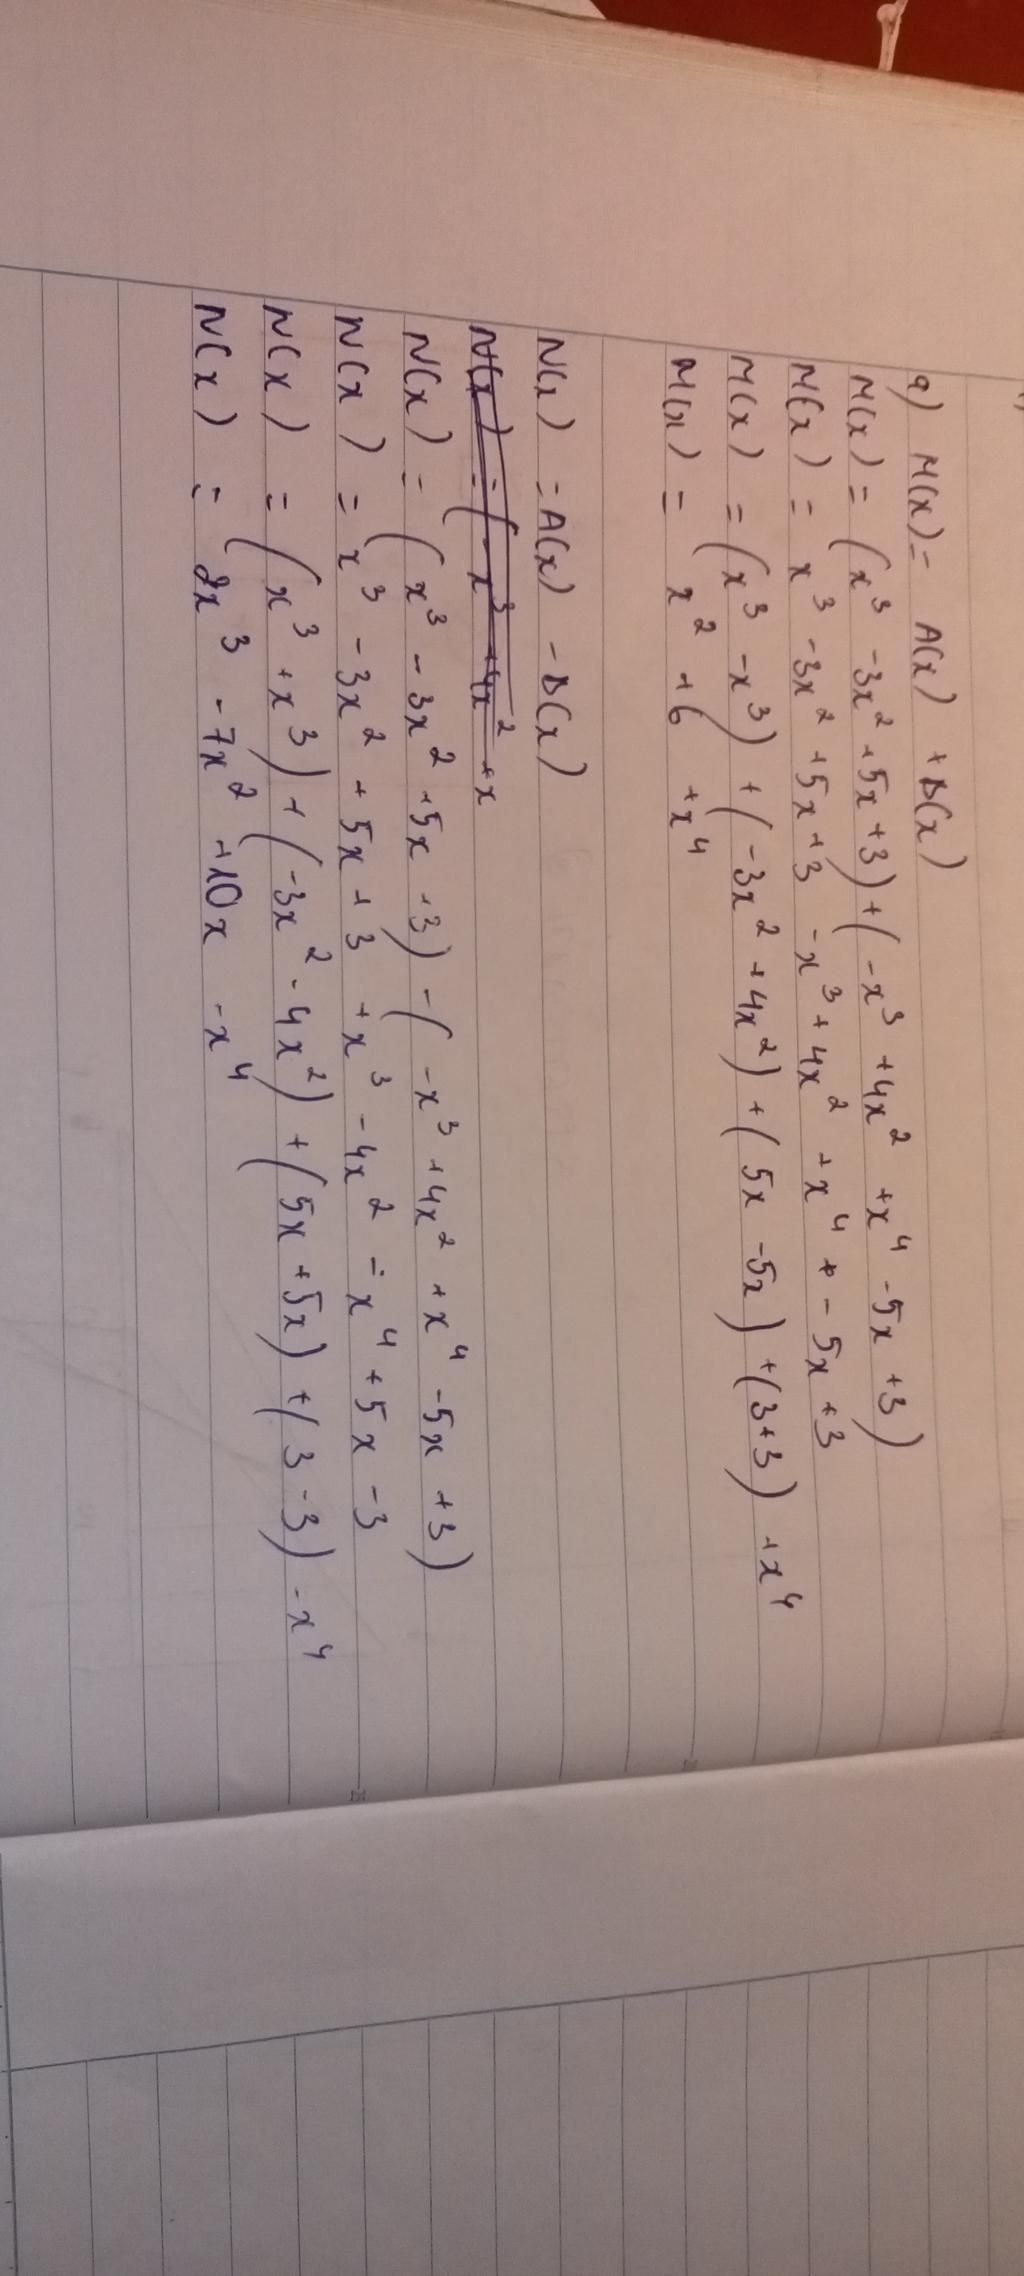 a) M(x) = A(x) + B(x)
M(x) = (x³ - 3x² + 5x + 3) + (-x³ + 4x² + x⁴ - 5x + 3)
M(x) = x³ - 3x² + 5x + 3 - x³ + 4x² + x⁴ + - 5x + 3
M(x) = (x³ - x³) + (-3x² + 4x²) + (5x - 5x) + (3+3) + x⁴
M(x) = x² + 6 + x⁴
N(x) = A(x) - B(x)
N(x) = (-x³ + 4x² + x
N(x) = (x³ - 3x² + 5x + 3) - (-x³ + 4x² + x⁴ - 5x + 3)
N(x) = x³ - 3x² + 5x + 3 + x³ - 4x² - x⁴ + 5x - 3
N(x) = (x³ + x³) + (-3x² - 4x²) + (5x + 5x) + (3 - 3) - x⁴
N(x) = 2x³ - 7x² + 10x - x⁴